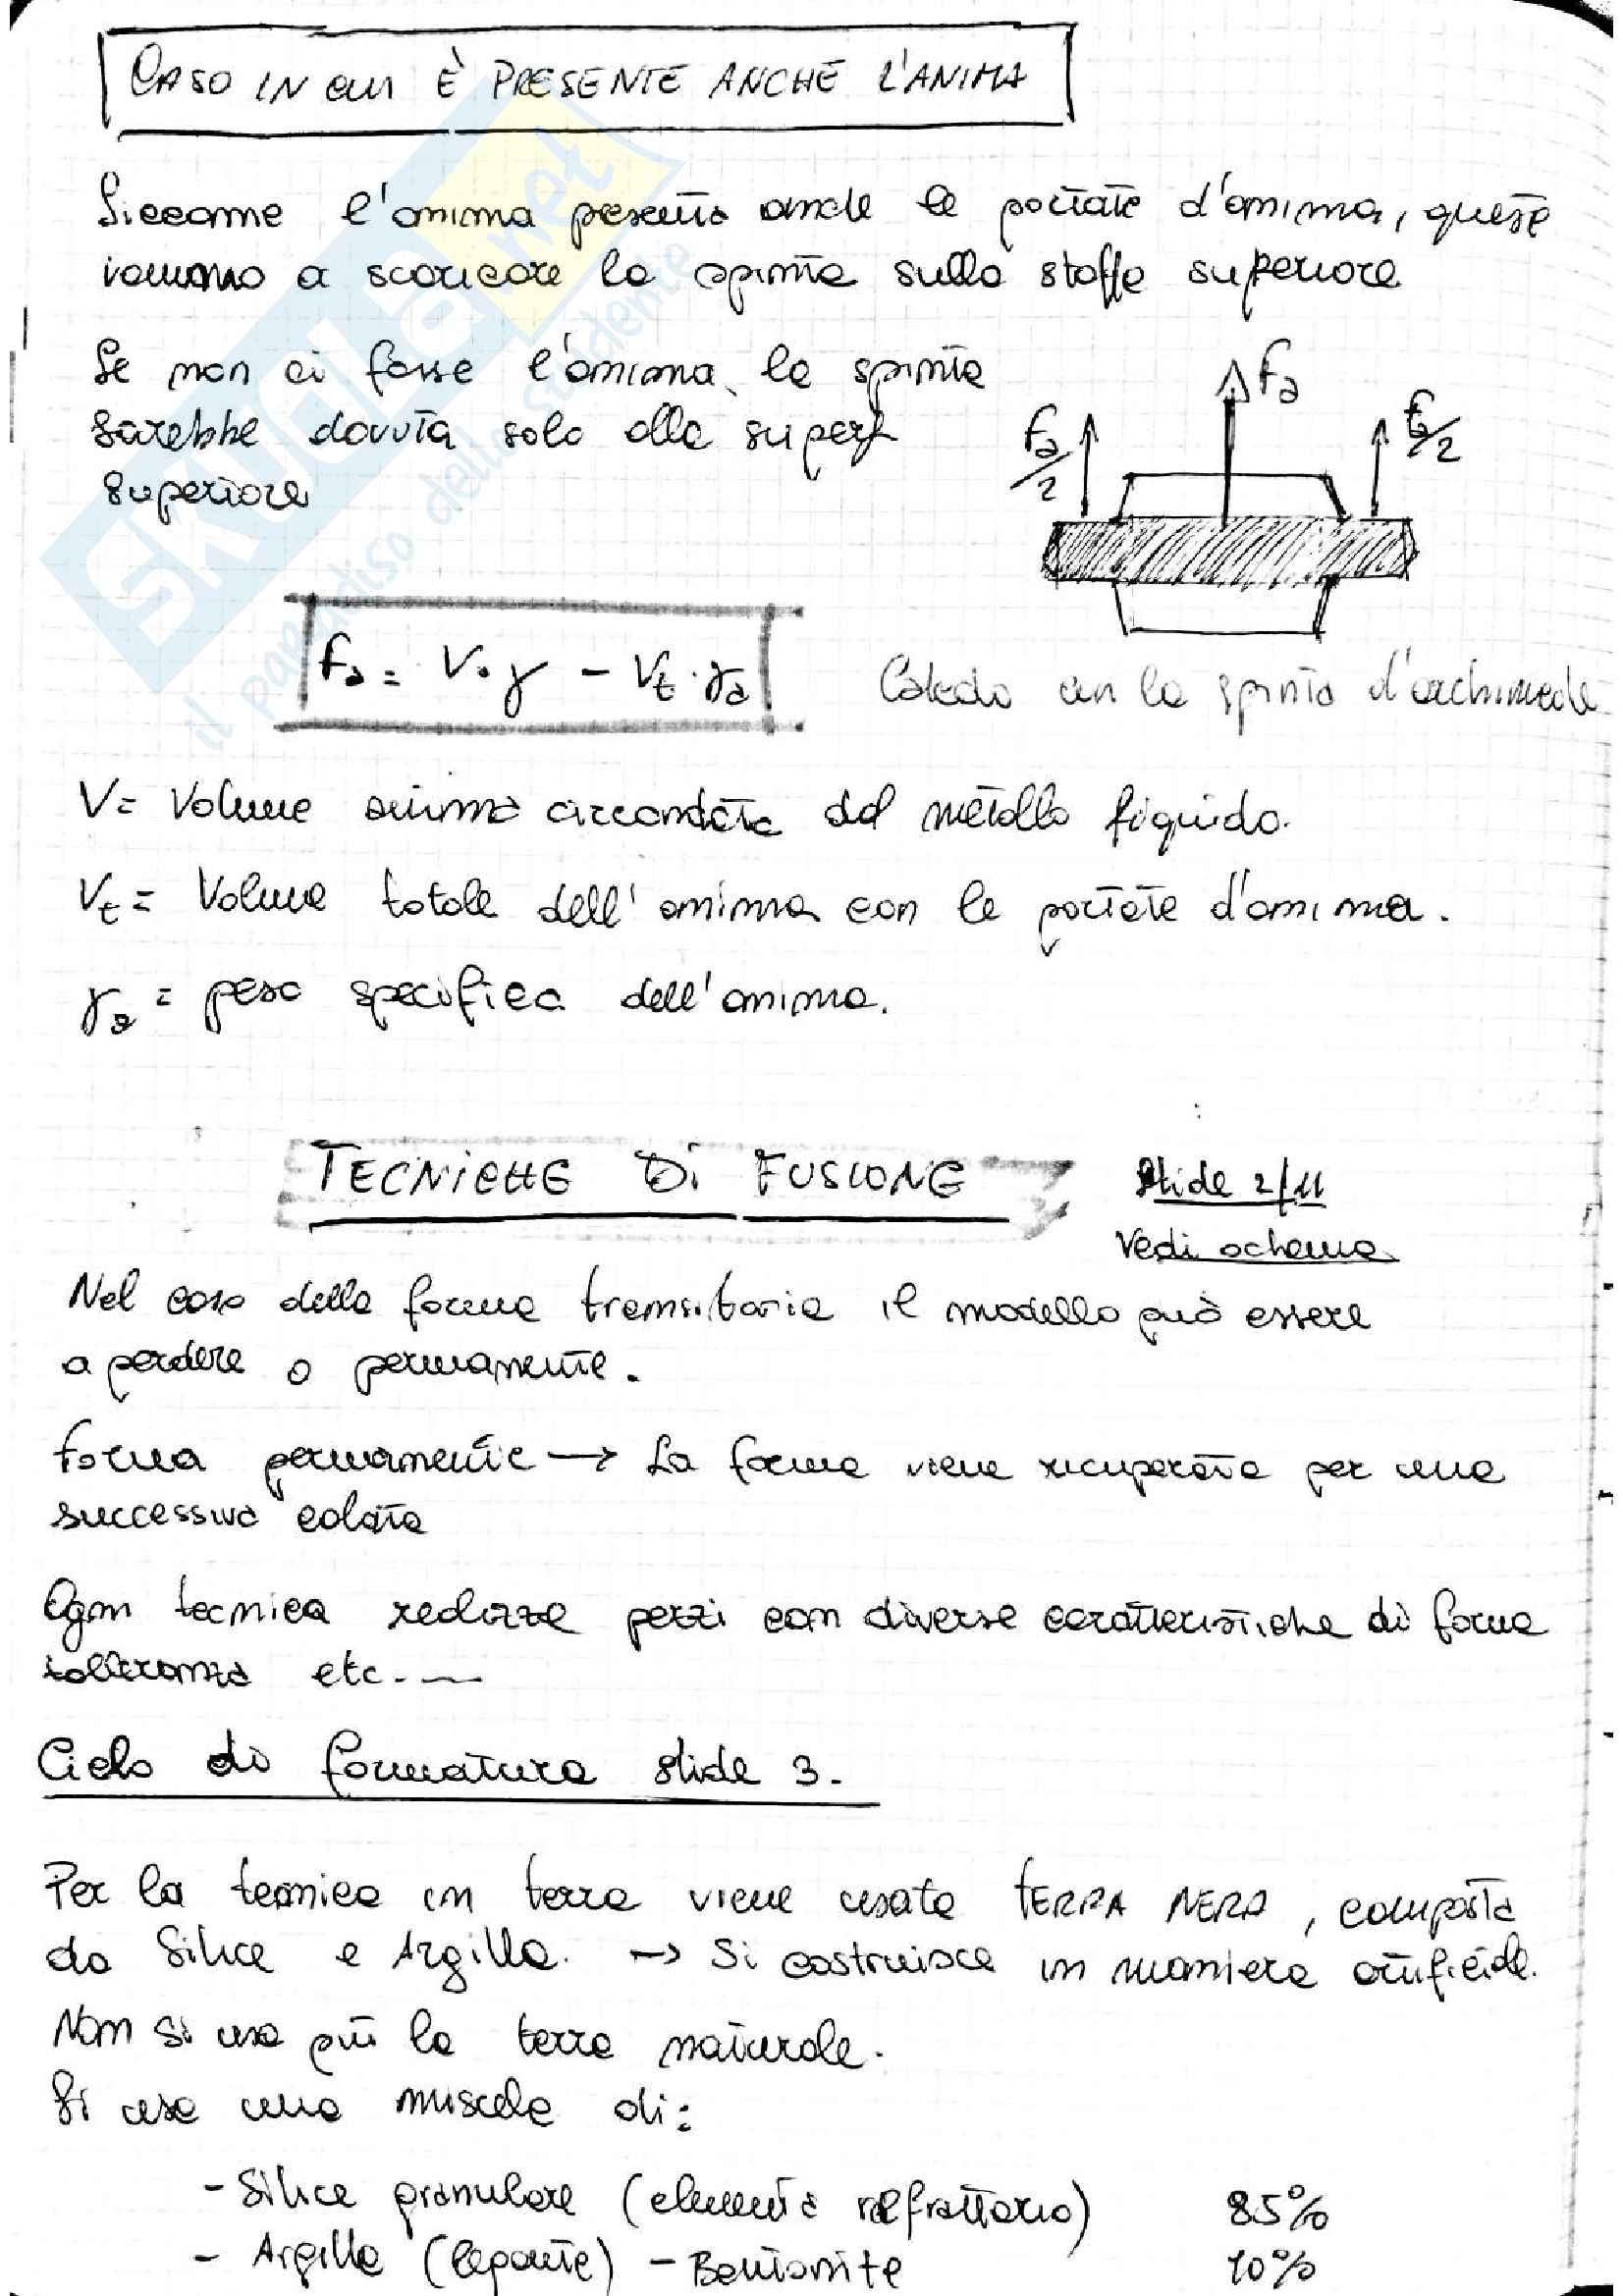 CASO IN CUI È PRESENTE ANCHE L'ANIMA
Siccome l'anima presenta anche le portate d'anima, queste
vanno a scaricare la spinta sulla staffa superiore
Se non ci fosse l'anima, la spinta
sarebbe dovuta solo alla superf
superiore
Fa
Fa/2
Fa/2
Fa = V·γ - Vt·γa
Calcolo con la spinta d'archimede
V = Volume anima circondata dal metallo liquido.
Vt = Volume totale dell'anima con le portate d'anima.
γa = peso specifico dell'anima.
TECNICHE Di FUSIONE
Slide 2/11
Vedi schema
Nel caso della forma transitoria il modello può essere
a perdere o permanente.
Forma permanente → La forma viene recuperata per una
successiva colata
Ogni tecnica realizza pezzi con diverse caratteristiche di forma
tolleranza etc....
Ciclo di formatura slide 3.
Per la tecnica in terra viene usata TERRA NERA, composta
da Silice e Argilla. → Si costruisce in maniera artificiale.
Non si usa più la terra naturale.
Si usa una miscela di:
- Silice granulare (elemento refrattario) 85%
- Argilla (legante) - Bentonite 10%
SKUOLA.net
il paradiso dello studente